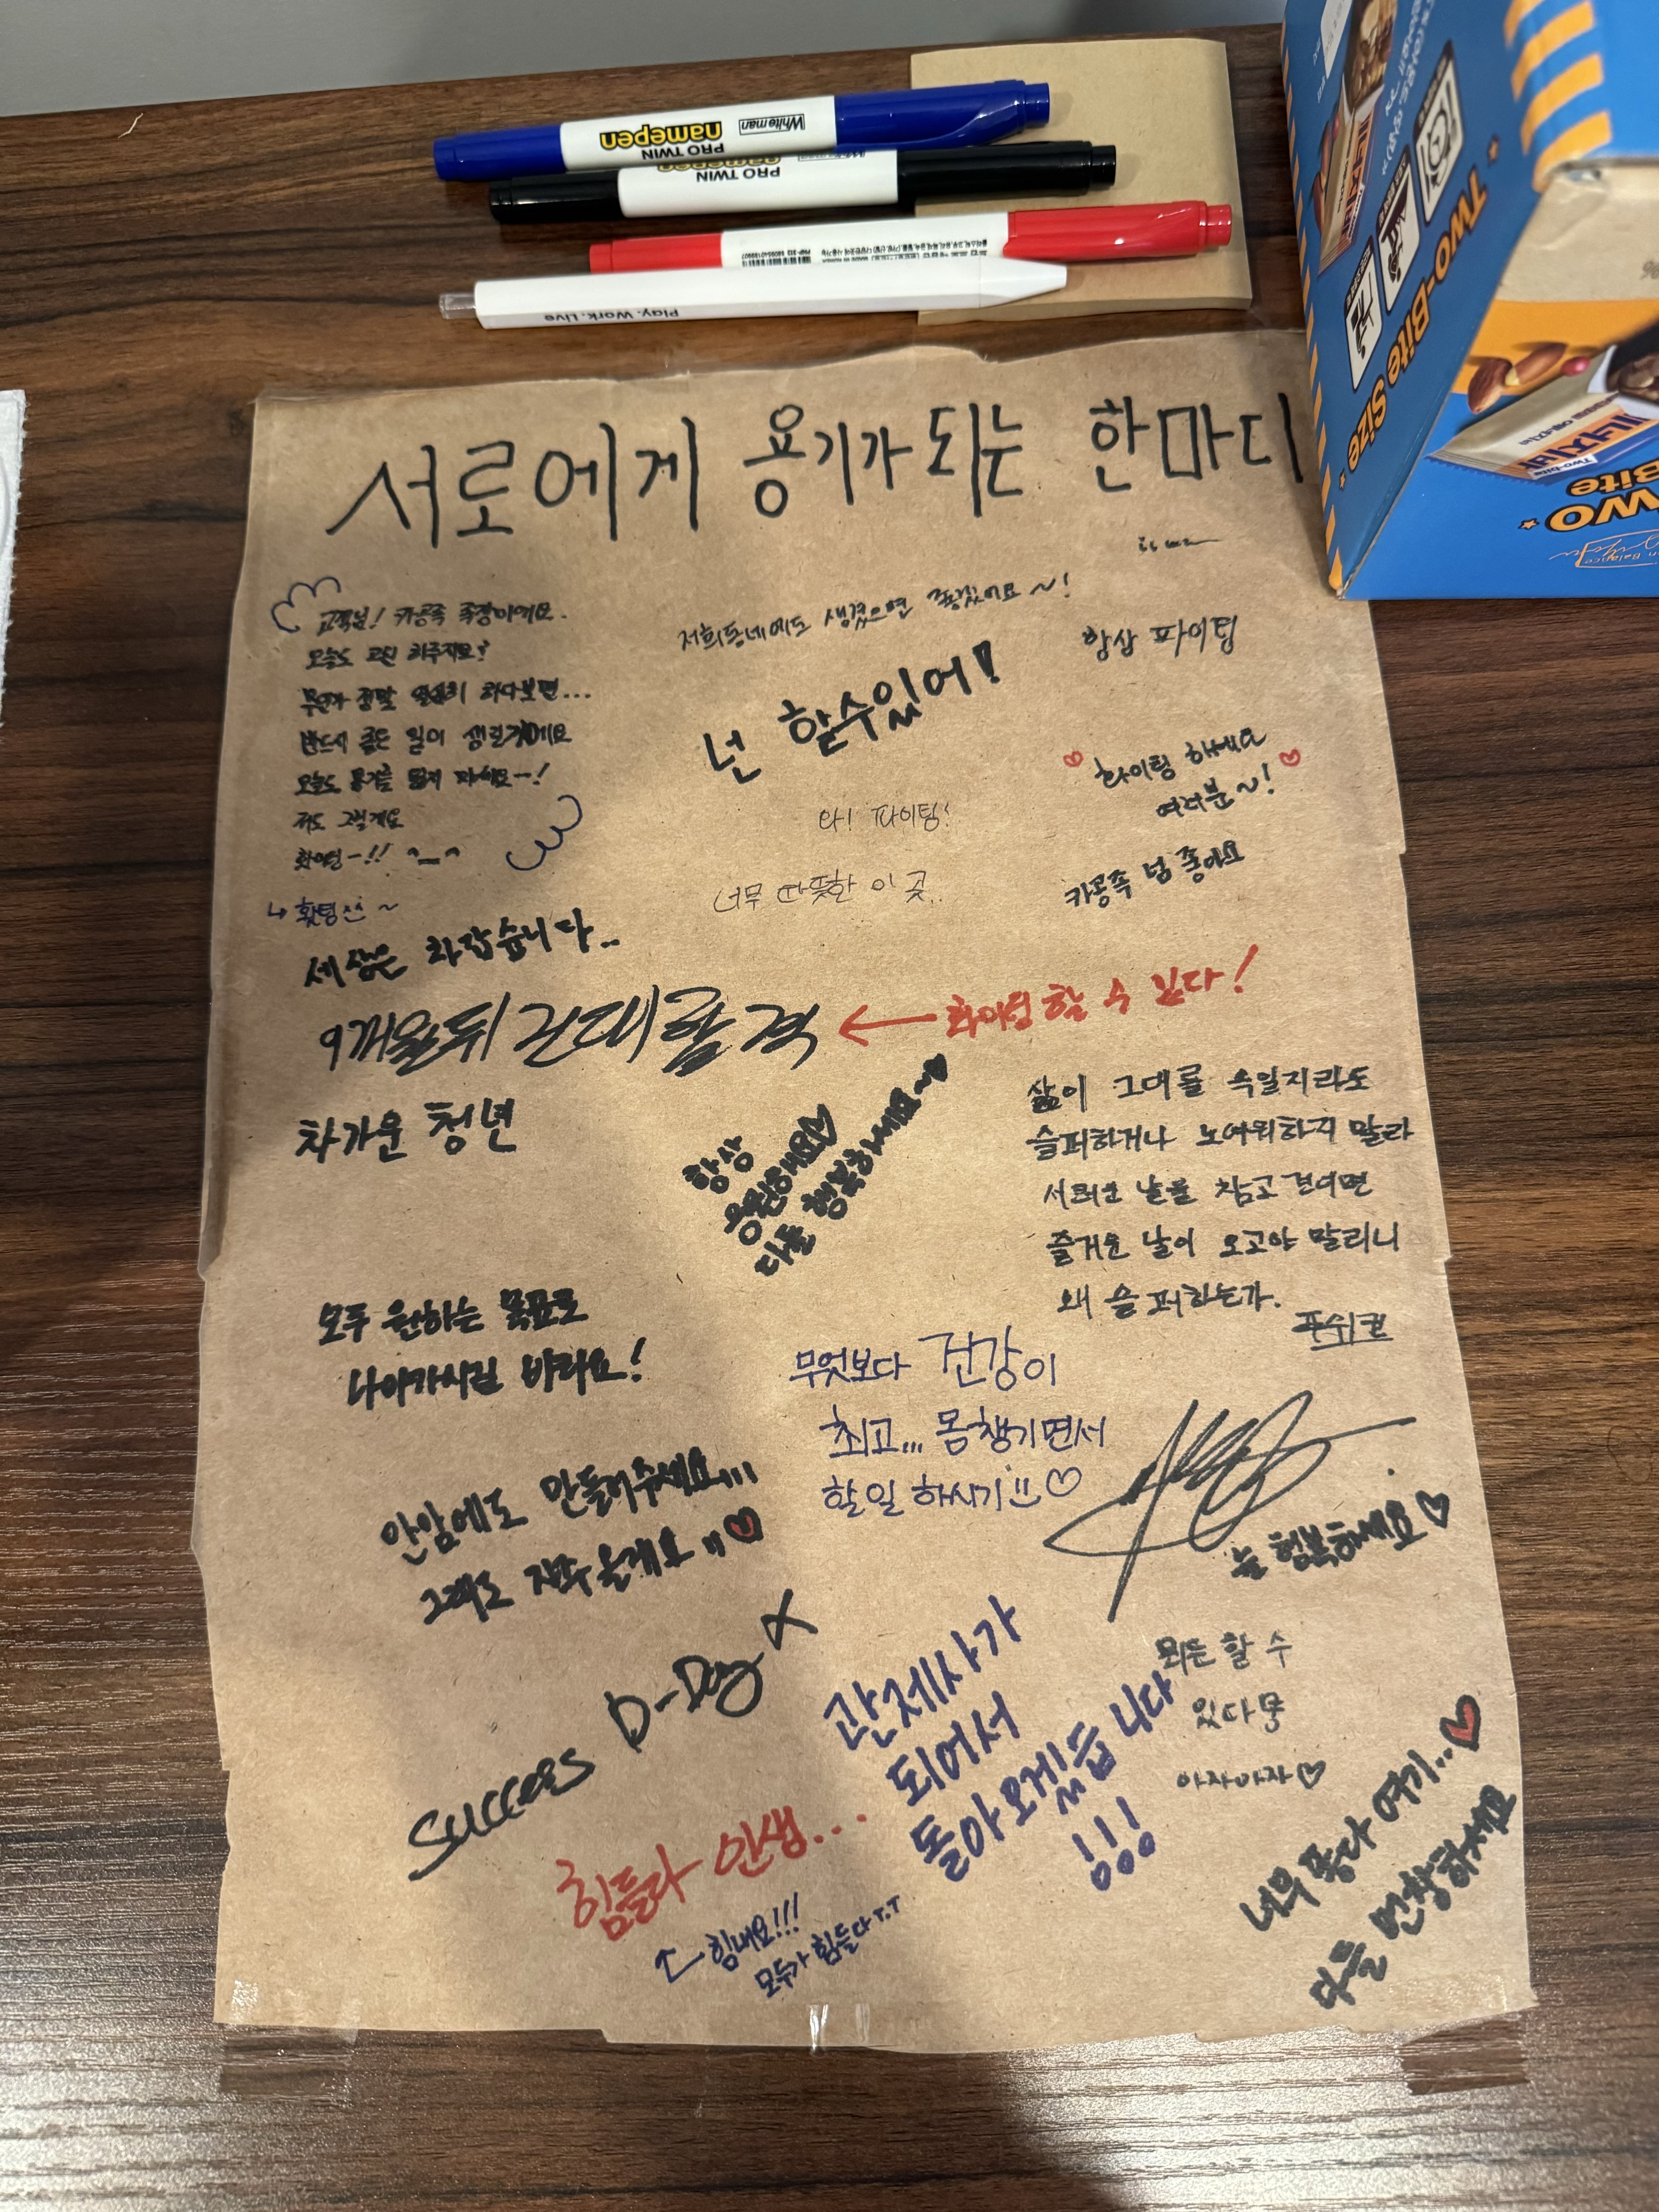 White man
PRO TWIN
namepen
PRO TWIN
namepen
Play.Work.Live
Two-Bite Size
에너지바
Two-bite
TWO
Bite
서로에게 용기가 되는 한마디
고객님! 카공족 족장이에요.
오늘도 고된 하루지요?
무언가 정말 열심히 하다보면...
반드시 좋은 일이 생길거에요
오늘도 용기를 잃지 마세요~!
저도 그럴게요
화이팅~!! ^_^
↳ 홧팅^^ ~
저희동네에도 생겼으면 좋겠어요~!
항상 파이팅
넌 할수있어!
♡ 화이팅 하세요 ♡
여러분~!
와! 파이팅!
너무 따뜻한 이 곳..
카공족 넘 좋아요
세상은 차갑습니다..
9개월뒤 건대합격 ← 화이팅 할 수 있다!
차가운 청년
항상
응원해요♡
다들 행복하세요~♥
삶이 그대를 속일지라도
슬퍼하거나 노여워하지 말라
서러운 날을 참고 견디면
즐거운 날이 오고야 말리니
왜 슬퍼하는가.
푸쉬킨
모두 원하는 목표로
나아가시길 바라요!
무엇보다 건강이
최고... 몸챙기면서
할일 하시기 ♡
안암에도 만들어주세요...
그래도 자주올게요 ♥
늘 행복하세요♡
success D-Day X
관제사가
되어서
돌아오겠습니다
!!!
뭐든 할 수
있다뭉
아자아자♡
힘들다 인생...
↑ 힘내요!!!
모두가 힘들다 T.T
너무 좋다 여기..♥
다들 번창하세요